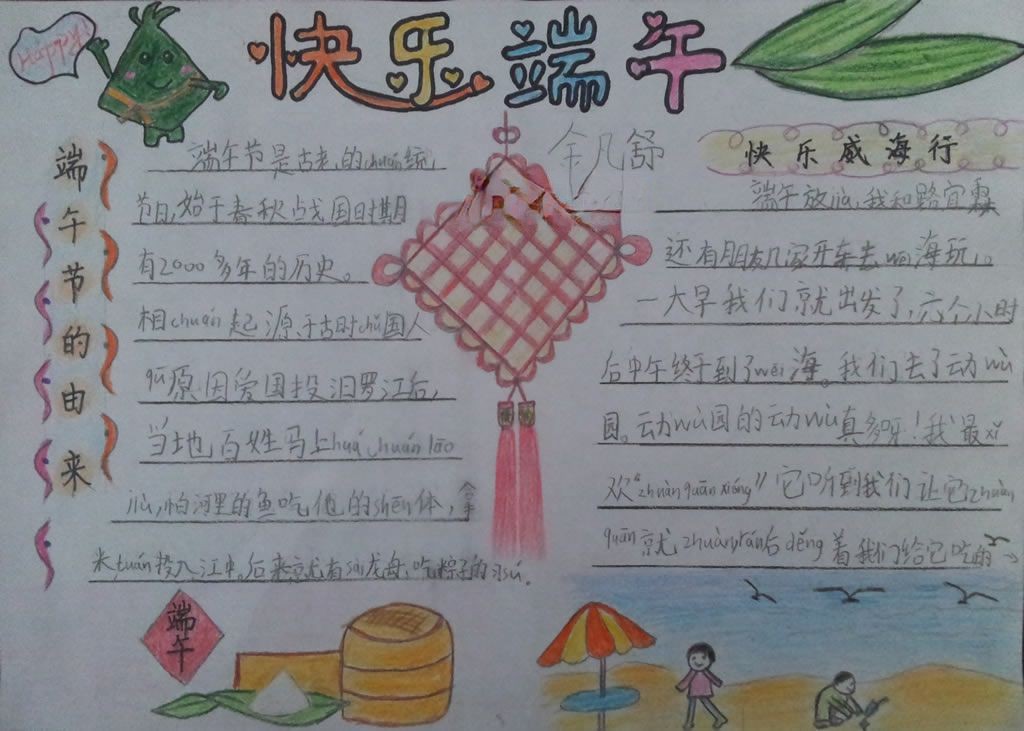 Happy!
快乐端午
端午节的由来
端午节是古老的chuán统
节日,始于春秋战国时期
有2000多年的历史。
相chuán起源于古时chǔ国人
qū原因爱国投汨罗江后,
当地百姓马上huá chuán lāo
jiù,怕河里的鱼吃他的shēn体,拿
米tuán投入江中。后来就有sài龙舟,吃粽子的习sú.
端午
快乐威海行
端午放jià,我和路宜霖
还有朋友几家开车去wēi海玩,。
一大早我们就出发了,六个小时
后中午终于到了wēi海。我们去了动wù
园。动wù园的动wù真多呀!我最xǐ
欢"zhuàn quān xióng"它听到我们让它zhuàn
quān就zhuàn,rán后děng着我们给它吃的